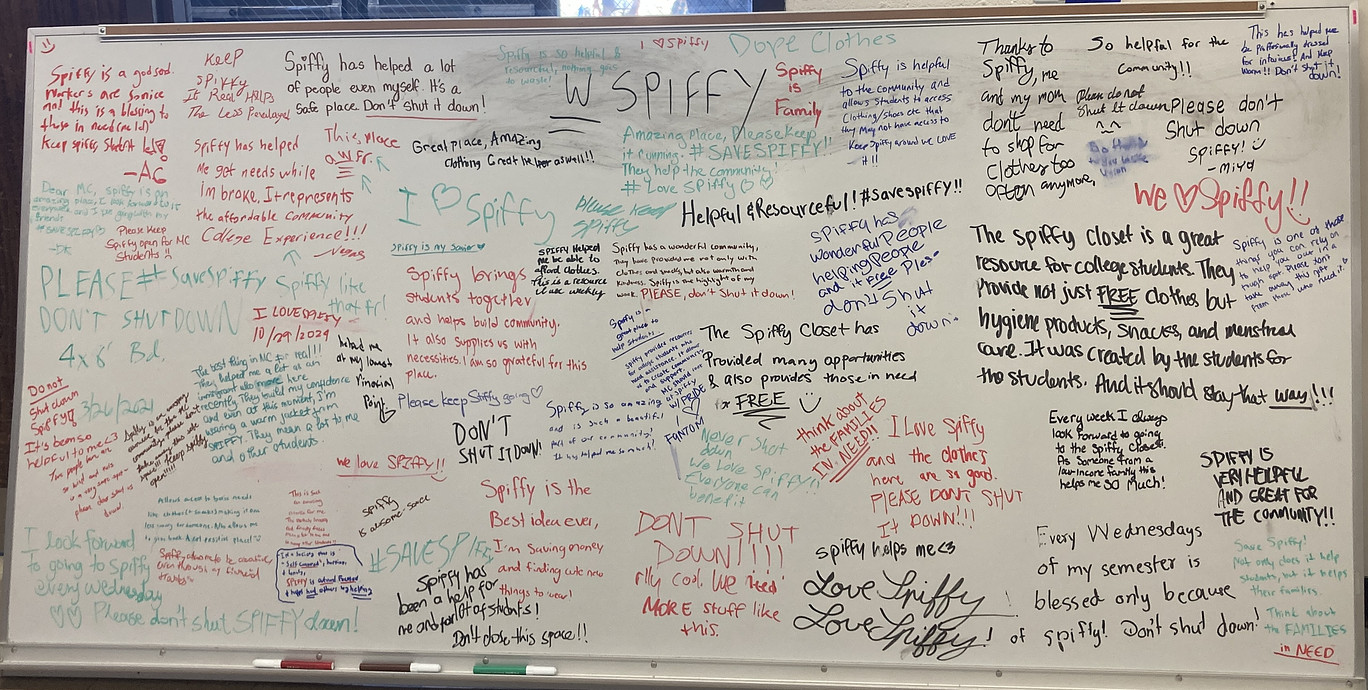 Spiffy is a godsend.
Workers are so nice
and this is a blessing to
those in need (me lol)
Keep spiffy, Student
-AG
KEEP
SPIFFY
It Real HELPS
The Less
Spiffy has helped a lot
of people even myself. It's a
safe place. Don't shut it down!
Spiffy is so helpful &
resourceful, nothing goes
to waste!
W SPIFFY
I ♡ Spiffy
Dope Clothes
Spiffy
is
Family
Spiffy is helpful
to the community and
allows students to access
Clothing/shoes etc that
they May not have access to
Keep Spiffy around we LOVE
it!!
Thanks to
Spiffy, me
and my mom
don't need
to shop for
clothes too
often anymore,
So helpful for the
Community!!
Please do not
Shut it down
^_^
Please don't
Shut down
SPIFFY!
-miya
This has helped me
be professionally dressed
for interviews And keep
warm!! Don't shut it
down!
Spiffy has helped
Me get needs while
im broke, It represents
the affordable Community
College Experience!!!
This place
a W Fr.
Great place, Amazing
Clothing Great helper as well!!
Amazing Place, Please keep
it running. #SAVESPIFFY!!
They help the community!
# Love Spiffy ♡ ♡
I ♡ Spiffy
please keep
Spiffy
Helpful & Resourceful! #savespiffy!!
We ♡ Spiffy!!
Dear MC, spiffy is an
amazing place, I look forward to it
everyweek and I love going with my
friends
#SAVESPIFFY
Please Keep
Spiffy open for MC
Students !!
PLEASE #SaveSpiffy Spiffy like
that fr!
DON'T SHUT DOWN
Spiffy is my savior ♡
Spiffy brings
students together
and helps build community.
It also supplies us with
necessities. I am so grateful for this
place.
SPIFFY Helped
me be able to
afford clothes.
This is a resource
I use weekly
Spiffy has a wonderful community,
They have provided me not only with
clothes and snacks, but also warmth and
kindness. Spiffy is the highlight of my
week. PLEASE, don't shut it down!
Spiffy has
wonderful People
helping People
and it Free Ples-
don't Shut
it
down.
The Spiffy Closet is a great
resource for college students. They
Provide not just FREE clothes but
hygiene products, snacks, and menstrual
care. It was created by the students for
the students. And it should stay that way!!!
Spiffy is one of those
things you can rely on
to help you out in a
tough spot. Please don't
take away this gift
from those who need it.
I LOVE SPIFFY
10/29/2024
4x8' Bd.
3/26/2021
helped me
at my lowest
Financial
Point
The best thing in MC fr real!!!
They helped me a lot as an
immigrant who moved here
recently. They build my confidence
and even at this moment, I'm
wearing a warm jacket from
SPIFFY. They mean a lot to me
and other students.
Spiffy is a
great place to
help students
The Spiffy Closet has
Provided many opportunities
& also provides those in need
for FREE
W/PRIDE
FANTOM
Please keep Spiffy going ♡
DON'T
SHUT IT DOWN!
Spiffy is so amazing
and is such a beautiful
part of our community!
It has helped me so much!
Do not
Shut down
Spiffy!
It's been so
helpful to me <3
we love SPIFFY!!
Never Shut
down
We Love Spiffy!!
Everyone can
benefit
think about
the FAMILIES
IN NEED!!
I Love Spiffy
and the clothes
here are so good.
PLEASE DON'T SHUT
It DOWN!!!
Every week I always
look forward to going
to the Spiffy Closet.
As someone from a
low-income family this
helps me SO Much!
SPIFFY IS
VERY HELPFUL
AND GREAT FOR
THE COMMUNITY!!
I look forward
to going to Spiffy
every wednesday
♡♡ Please don't shut SPIFFY down!
Spiffy
is awesome sauce
#SAVESPIFFY
Spiffy has
been a help for
me and for lot of students!
Don't close this space!!
Spiffy is the
Best idea ever,
I'm Saving money
and finding cute new
things to wear!
DONT SHUT
DOWN!!!!
rlly cool. We need
MORE stuff like
this.
Spiffy helps me <3
Love Spiffy!
Love Spiffy!
Every Wednesdays
of my semester is
blessed only because
of spiffy! Don't shut down!
Save Spiffy!
Not only does it help
students, but it helps
their families.
Think about
the FAMILIES
in NEED